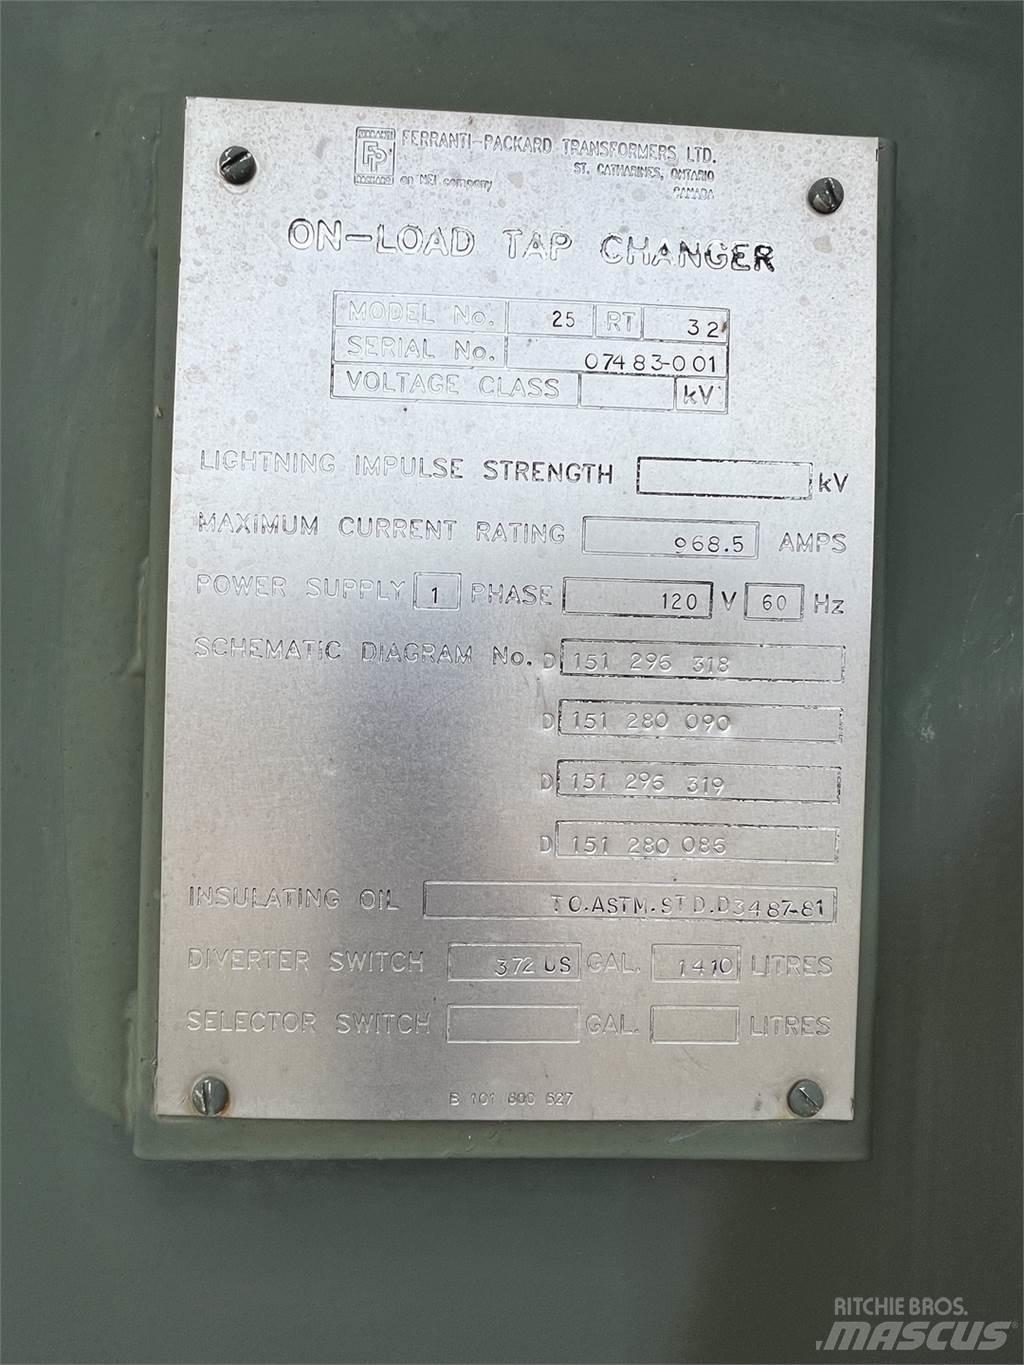 FERRANTI
FP
PACKARD
FERRANTI-PACKARD TRANSFORMERS LTD.
ST. CATHARINES, ONTARIO
an NEI company
CANADA
ON-LOAD TAP CHANGER
MODEL No. 25 RT 32
SERIAL No. 07483-001
VOLTAGE CLASS kV
LIGHTNING IMPULSE STRENGTH kV
MAXIMUM CURRENT RATING 968.5 AMPS
POWER SUPPLY 1 PHASE 120 V 60 Hz
SCHEMATIC DIAGRAM No. D 151 296 318
D 151 280 090
D 151 296 319
D 151 280 086
INSULATING OIL TO.ASTM.STD.D3487-81
DIVERTER SWITCH 372 US GAL. 1410 LITRES
SELECTOR SWITCH GAL. LITRES
B 101 800
RITCHIE BROS.
MASCUS